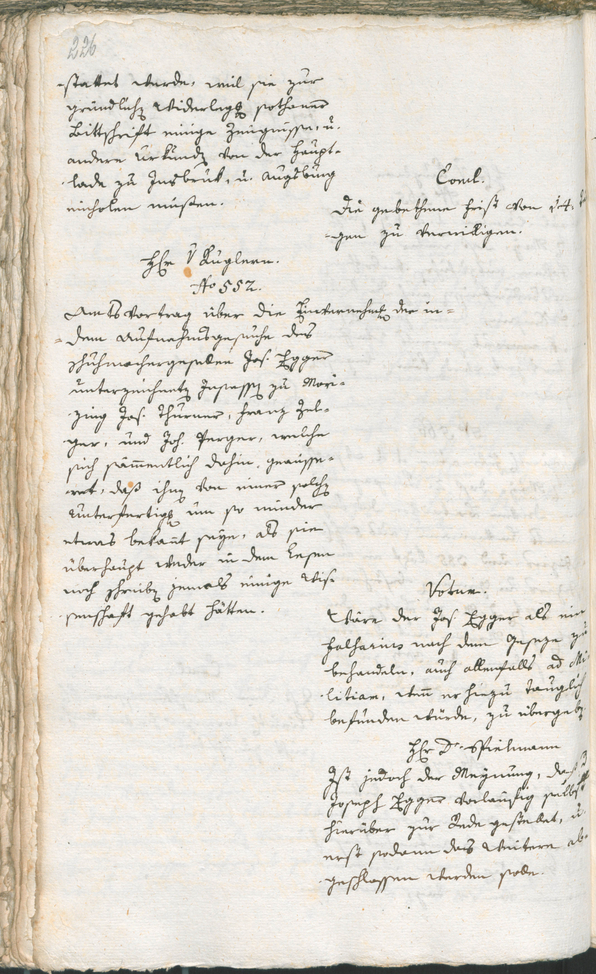 226
-stattet werde, weil sie zur
gründlich Widerlegg sothaner
Bittschrift einige Zeugnisse, u.
andere Urkund von der Haupt-
lade zu Insbruk, u. Augsburg
einholen müßen.
Concl.
Die gebethene Frist von 14
gen zu verwilligen.
Hr v Kuglern.
No 552.
Amtsvortrag über die Einvernehm der in-
dem Aufnahmsgesuche des
Schuhmachergesellen Jos. Egger
unterzeichnet Insassen zu Mori-
zing Jos. Thurner, Franz Zel-
ger, und Joh. Perger, welche
sich sämmentlich dahin, geäusse-
ret, daß ihnen von einer solch
Unterfertigg um so minder
etwas bekannt seye, als sie
überhaupt weder in dem Lesen
noch schreiben jemals einige Wis-
senschaft gehabt hätten.
Votum.
Wäre der Jos. Egger als ein
falsarius nach dem Geseze zu
behandeln, auch allenfalls ad Mi
litiam, wenn er hiezu tauglich
befunden würde, zu übergeben
Hr Dr. Spielmann
Ist jedoch der Meynung, daß
Joseph Egger vorläufig selbst
hierüber zur Rede gestellet, u.
erst sodann das Weitere ab-
geschlossen werden solle.